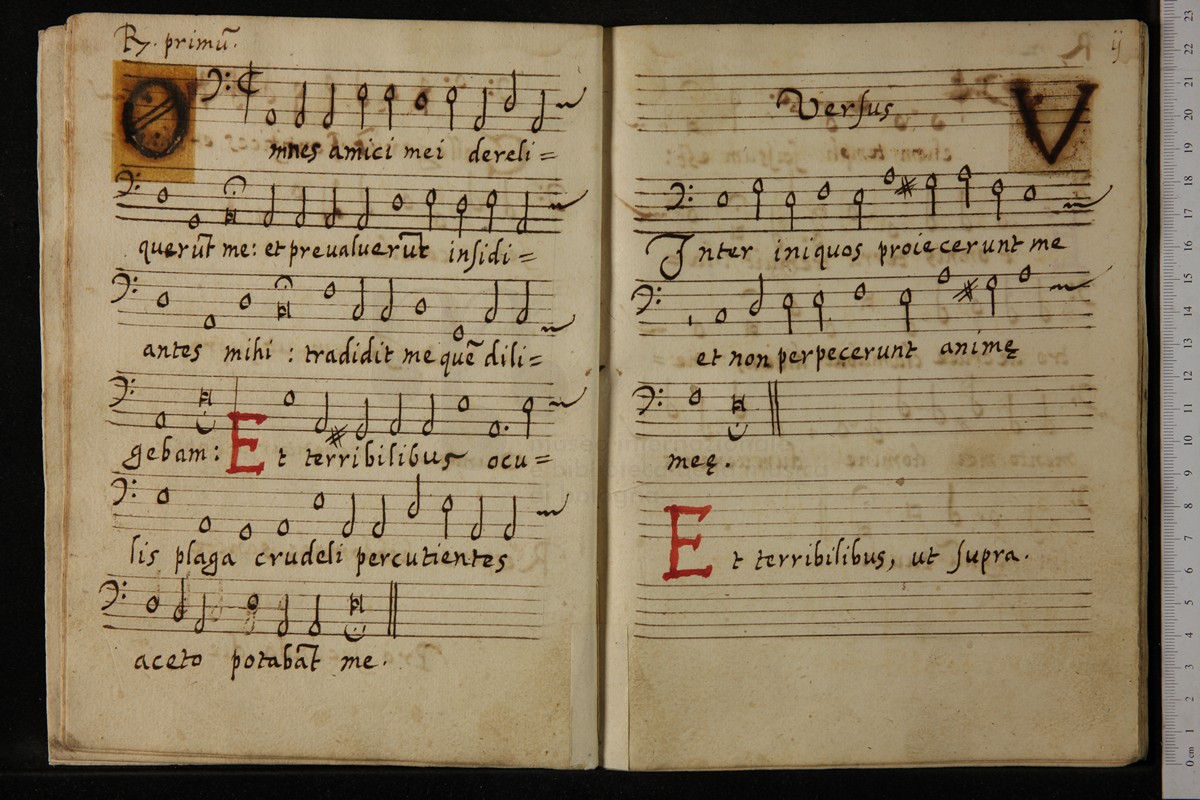 R. primū.
Omnes amici mei dereli=
querūt me: et preualuerūt insidi=
antes mihi : tradidit me quē dili=
gebam: Et terribilibus ocu=
lis plaga crudeli percutientes
aceto potabāt me.
ij
Versus
V
Inter iniquos proiecerunt me
et non perpecerunt animę
meę.
Et terribilibus, ut supra.